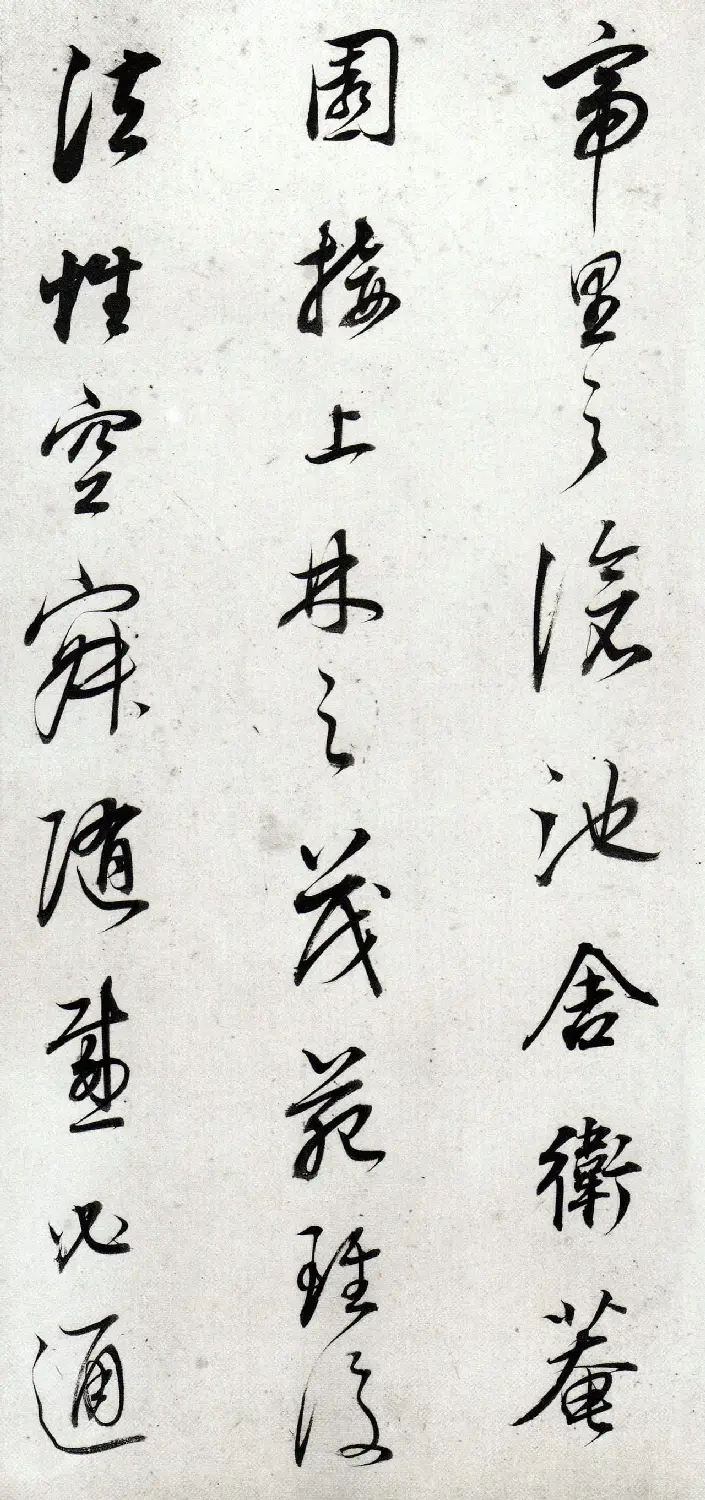 帝里之滄池舍衛菴
園接上林之茂苑雖復
法性空寂隨感必通